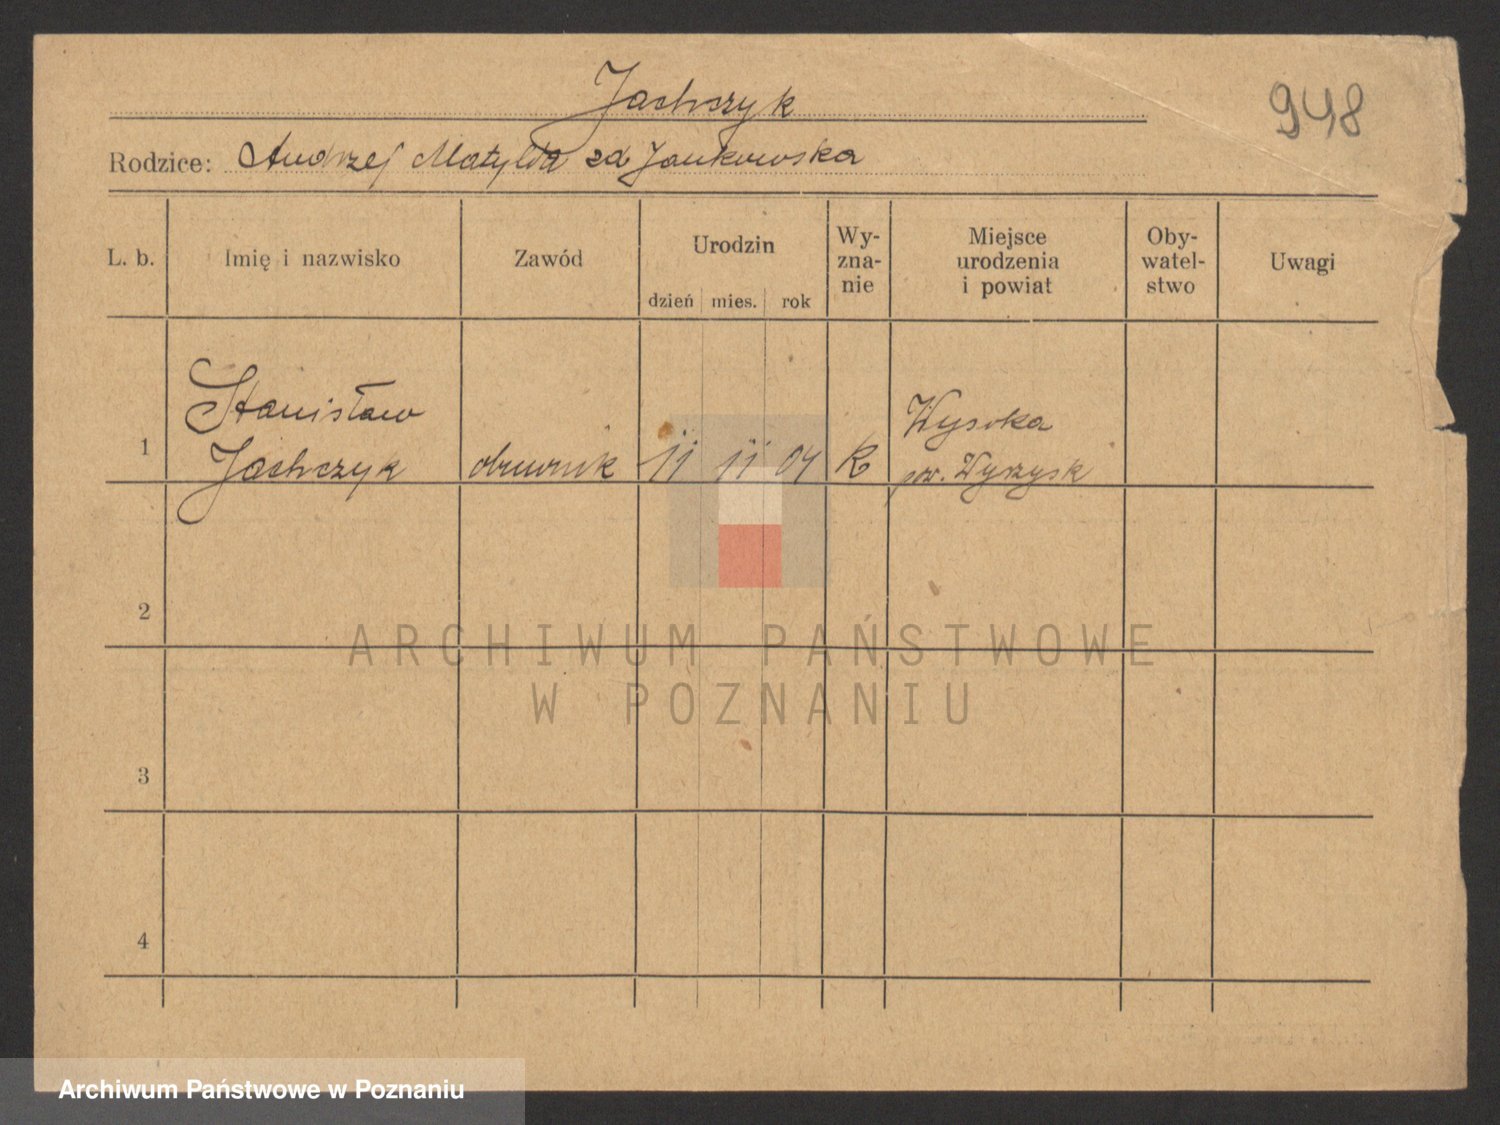 Jachczyk
948
Rodzice: Andrzej Matylda zd Jankowska
L. b.
Imię i nazwisko
Zawód
Urodzin
dzień mies. rok
Wy-
zna-
nie
Miejsce
urodzenia
i powiat
Oby-
watel-
stwo
Uwagi
1
Stanisław
Jachczyk
11 11 04
Wysoka
pow. Wyrzysk
2
ARCHIWUM PAŃSTWOWE
W POZNANIU
3
4
Archiwum Państwowe w Poznaniu